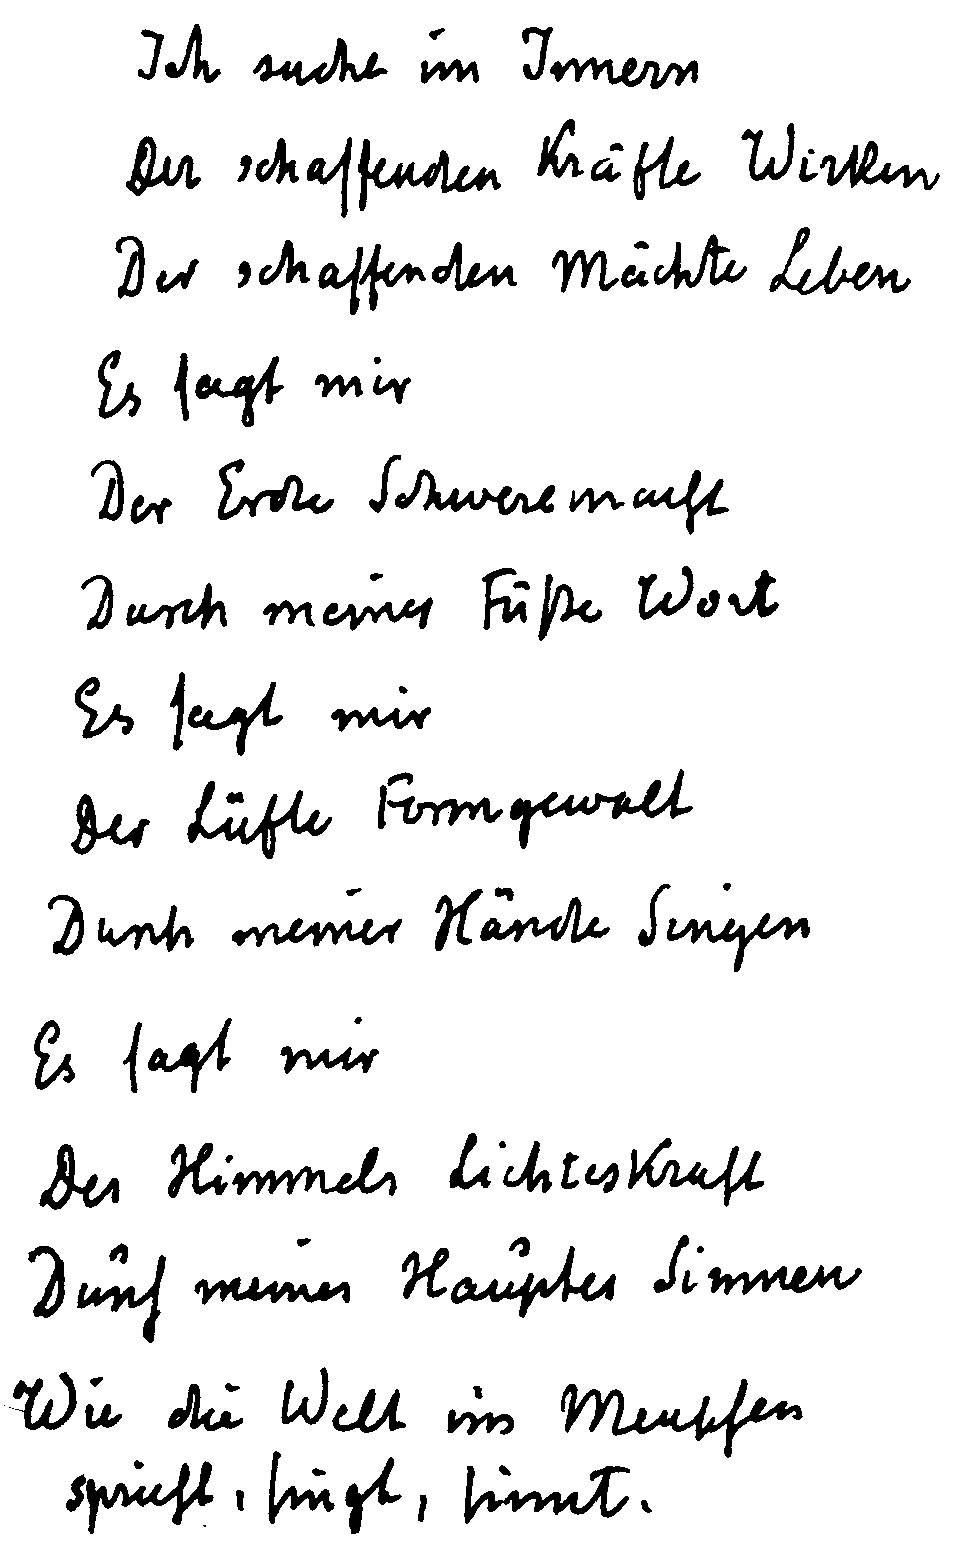 Ich suche im Innern
Der schaffenden Kräfte Wirken
Der schaffenden Mächte Leben
Es sagt mir
Der Erde Schweremacht
Durch meiner Füße Wort
Es sagt mir
Der Lüfte Formgewalt
Durch meiner Hände Singen
Es sagt mir
Des Himmels Lichteskraft
Durch meines Hauptes Sinnen
Wie die Welt im Menschen
spricht, singt, sinnt.